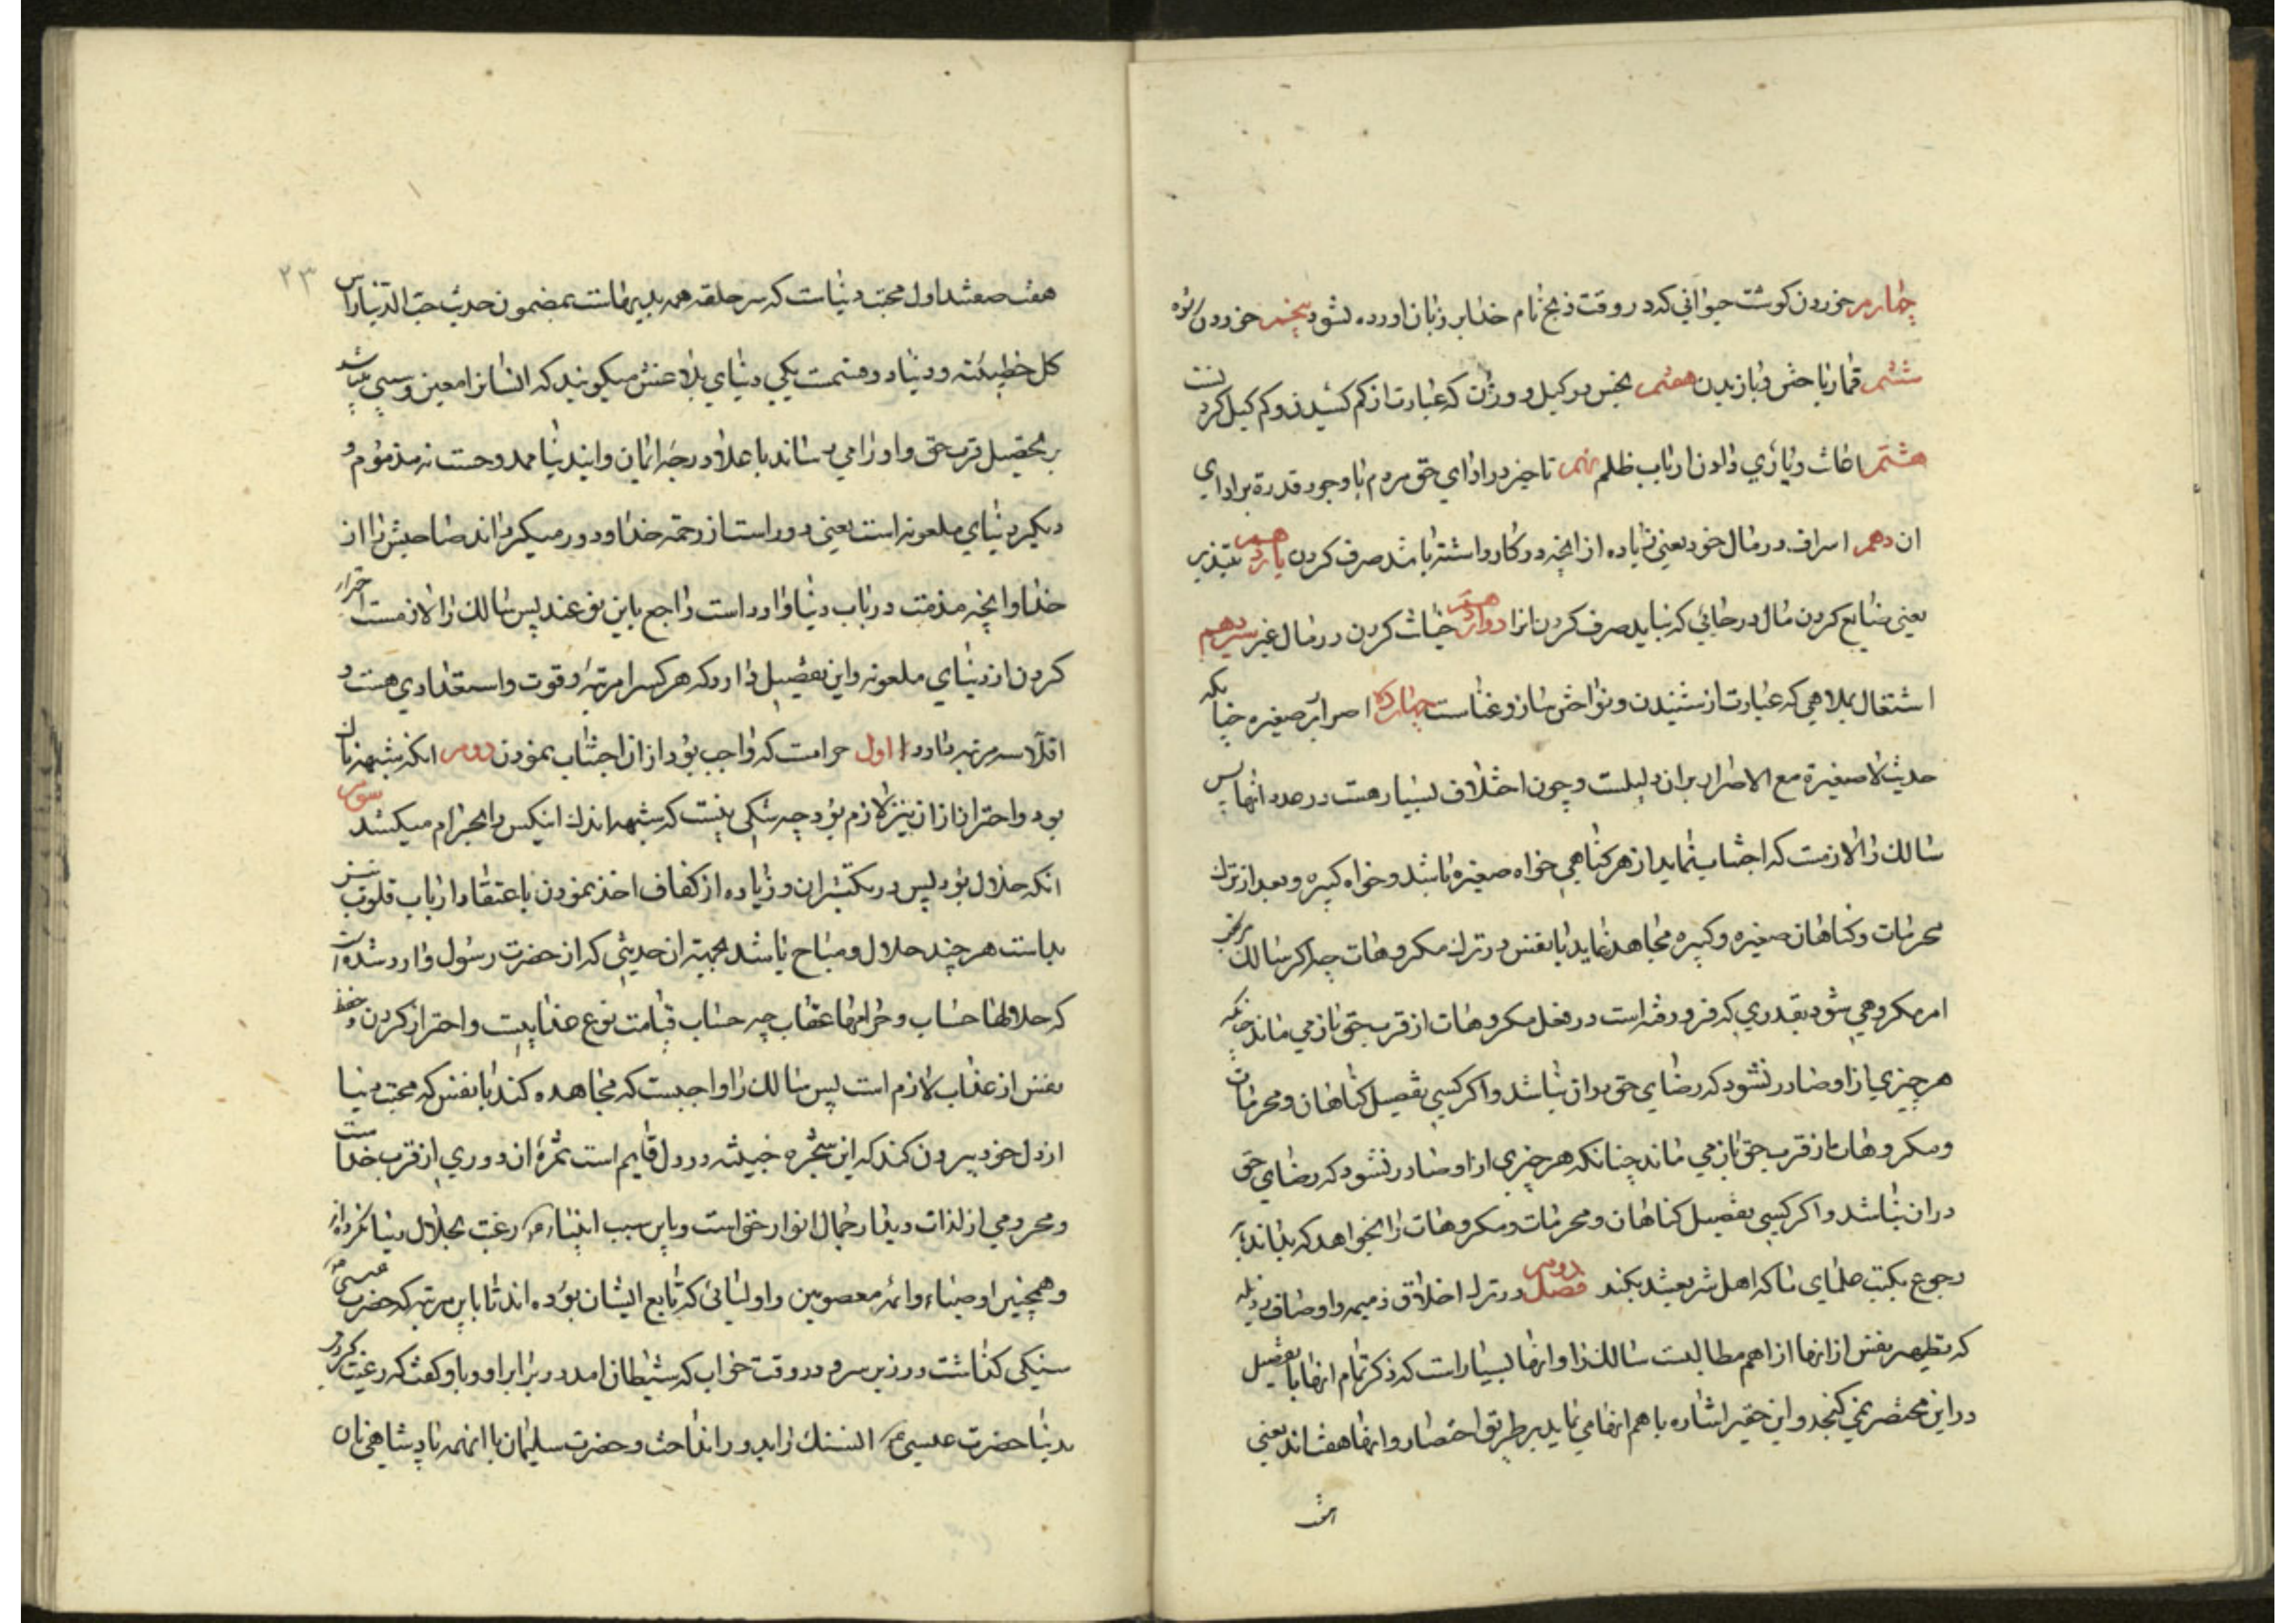 چهارم خوردن کوشت حیوانی که در وقت ذبح نام خدا بر زبان اورده نشود پنجم خوردن
ششم قمار باختن و بازیدن هفتم بخس در کیل و وزن که عبارت از کم کشیدن و کم کیل کردنست
هشتم اعانت و یاری دادن ارباب ظلم نهم تاخیر در ادای حق مردم با وجود قدرة بر ادای
ان دهم اسراف در مال خود یعنی زیاده از انچه در کار داشته باشد صرف کردن یازدهم تبذیر
یعنی ضایع کردن مال در جائی که نباید صرف کردن انرا دوازدهم خیانت کردن در مال غیر سیزدهم
اشتغال بملاهی که عبارت از شنیدن و نواختن ساز و غناست چهارده اصرار بر صغیره چنانکه
حدیث لا صغیرة مع الاصرار بران دلیلست و چون اختلاف بسیار هست در عدد انها پس
سالك را لازمست که اجتناب نماید از هر کناهی خواه صغیره باشد و خواه کبیره و بعد از ترك
محرمات و کناهان صغیره و کبیره مجاهده نماید با نفس در ترك مکروهات چه اکر سالك مرتکب
امر مکروهی شود بقدری که فرو رفته است در فعل مکروهات از قرب حق باز می ماند چنانکه
هر چیزی از او صادر نشود که رضای حق دران نباشد و اکر کسی تفصیل کناهان و محرمات
و مکروهات از قرب حق باز می ماند چنانکه هر چیزی از او صادر نشود که رضای حق
دران نباشد و اکر کسی تفصیل کناهان و محرمات و مکروهات را بخواهد که بداند باید
رجوع بکتب علمای ما که اهل شریعتند بکند فصل دوم در ترك اخلاق ذمیمه و اوصاف رذیله
که تطهیر نفس از انها از اهم مطالبست سالك را و انها بسیار است که ذکر تمام انها با تفصیل
در این مختصر نمی کنجد و این حقیر اشاره باهم انها می نماید بر طریق اختصار و انها هفت اند یعنی
۲۳
هفت صفتند اول محبت دنیاست که سر حلقه همه بدیهاست بمضمون حدیث حبّ الدّنیا راس
کل خطیئة و دنیا دو قسمت یکی دنیای بلاغتش میکویند که انسانرا معین و سببی میباشد
بر تحصیل قرب حق و او را می رساند باعلا درجه ایمان و این دنیا ممدوحست نه مذموم و
دیکر دنیای ملعونه است یعنی دور است از رحمة خدا و دور میکرداند صاحبش را از
خدا و انچه مذمت در باب دنیا وارد است راجع باین نوعند پس سالك را لازمست احتراز
کردن از دنیای ملعونه و این تفصیل دارد که هر کسرا مرتبه و قوت و استعدادی هست و
اقلّا سه مرتبه دارد اول حرامست که واجب بود از ان اجتناب نمودن دوم انکه شبهه ناك
بود و احتراز از ان نیز لازم بود چه شکی نیست که شبهه اندك اینکس را بحرام میکشد سوم
انکه حلال بود پس در یکثیر ان و زیاده از کفاف اخذ نمودن باعتقاد ارباب قلوب نیز
بداست هر چند حلال و مباح باشد بجهة ان حدیثی که از حضرت رسول وارد شده است
که حلالها حساب و حرامها عقاب چه حساب قیامت نوع عذابیست و احتراز کردن و حفظ
نفس از عذاب لازم است پس سالك را واجبست که مجاهده کند با نفس که محبت دنیا
از دل خود بیرون کند که این شجره خبیثه در دل قایم است ثمرهٔ ان دوری از قرب خداست
و محرومی از لذات دیدار جمال انوار حق است و باین سبب انبیاء رغبت بحلال دنیا نکرده اند
و همچنین اوصیاء و ائمه معصومین و اولیائی که تابع ایشان بوده اند تا باین مرتبه که حضرت عیسی
سنکی کذاشت در زیر سر و در وقت خواب که شیطان امد در برابر او و باو کفت که رغبت کردی
بدنیا حضرت عیسی ان سنك را بدور انداخت و حضرت سلیمان با انهمه پادشاهی نان